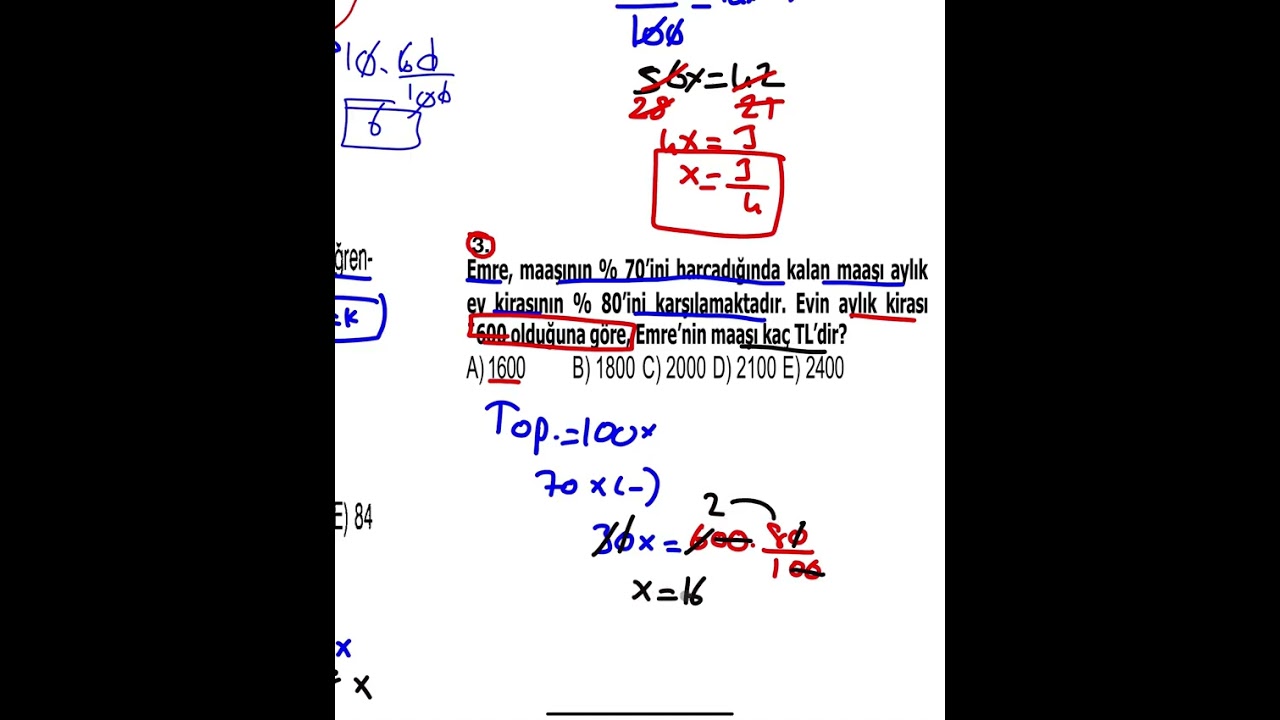 100
56x=42
28 21
4x=3
x=3/4
10.60/100
6
3.
Emre, maaşının % 70'ini harcadığında kalan maaşı aylık
ev kirasının % 80'ini karşılamaktadır. Evin aylık kirası
600 olduğuna göre, Emre'nin maaşı kaç TL'dir?
A) 1600 B) 1800 C) 2000 D) 2100 E) 2400
Top.=100x
70x(-)
2
30x=600.80/100
x=16
ğren-
=k
E) 84
x
x